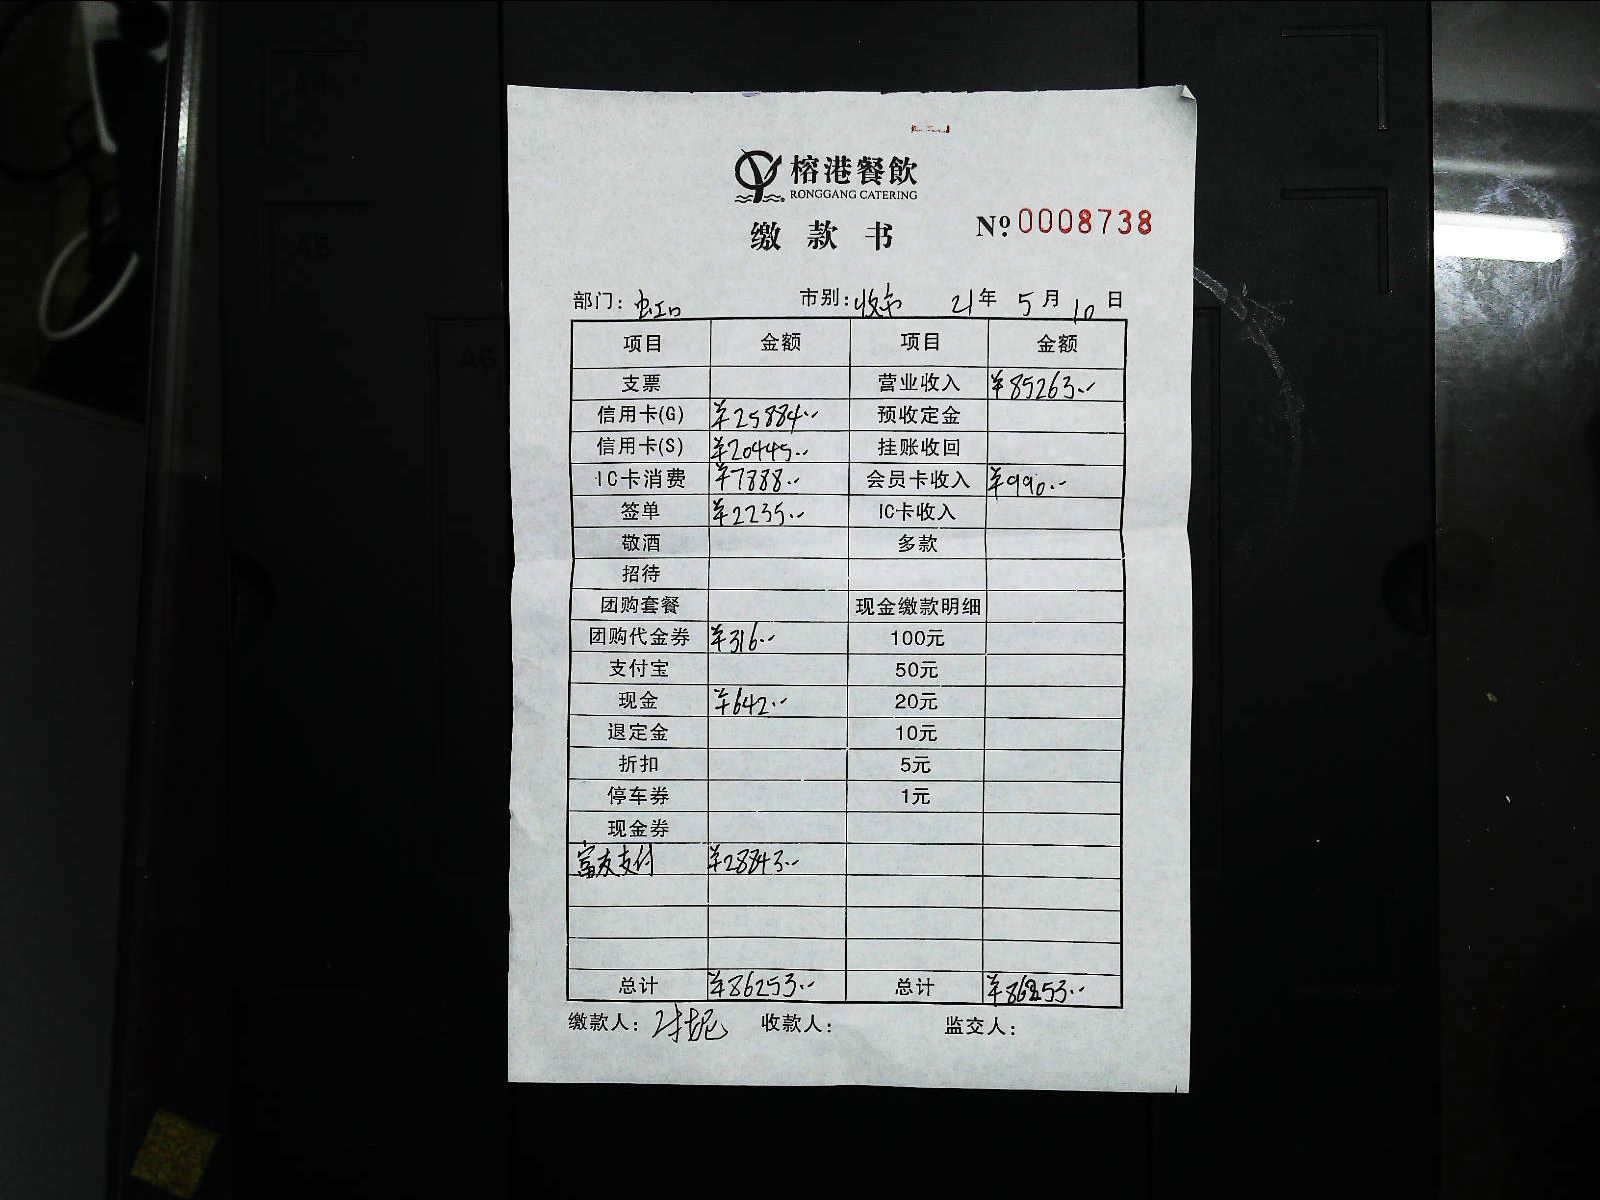 榕港餐飲
RONGGANG CATERING
缴款书 №0008738
部门：虹口 市别：收市 21年 5月 10日
项目 金额 项目 金额
支票 营业收入 ¥85263.--
信用卡(G) ¥25884.-- 预收定金
信用卡(S) ¥20445.-- 挂账收回
IC卡消费 ¥7888.-- 会员卡收入 ¥990.--
签单 ¥2235.-- IC卡收入
敬酒 多款
招待
团购套餐 现金缴款明细
团购代金券 ¥316.-- 100元
支付宝 50元
现金 ¥642.-- 20元
退定金 10元
折扣 5元
停车券 1元
现金券
富友支付 ¥28843.--
总计 ¥86253.-- 总计 ¥86253.--
缴款人： 收款人： 监交人：